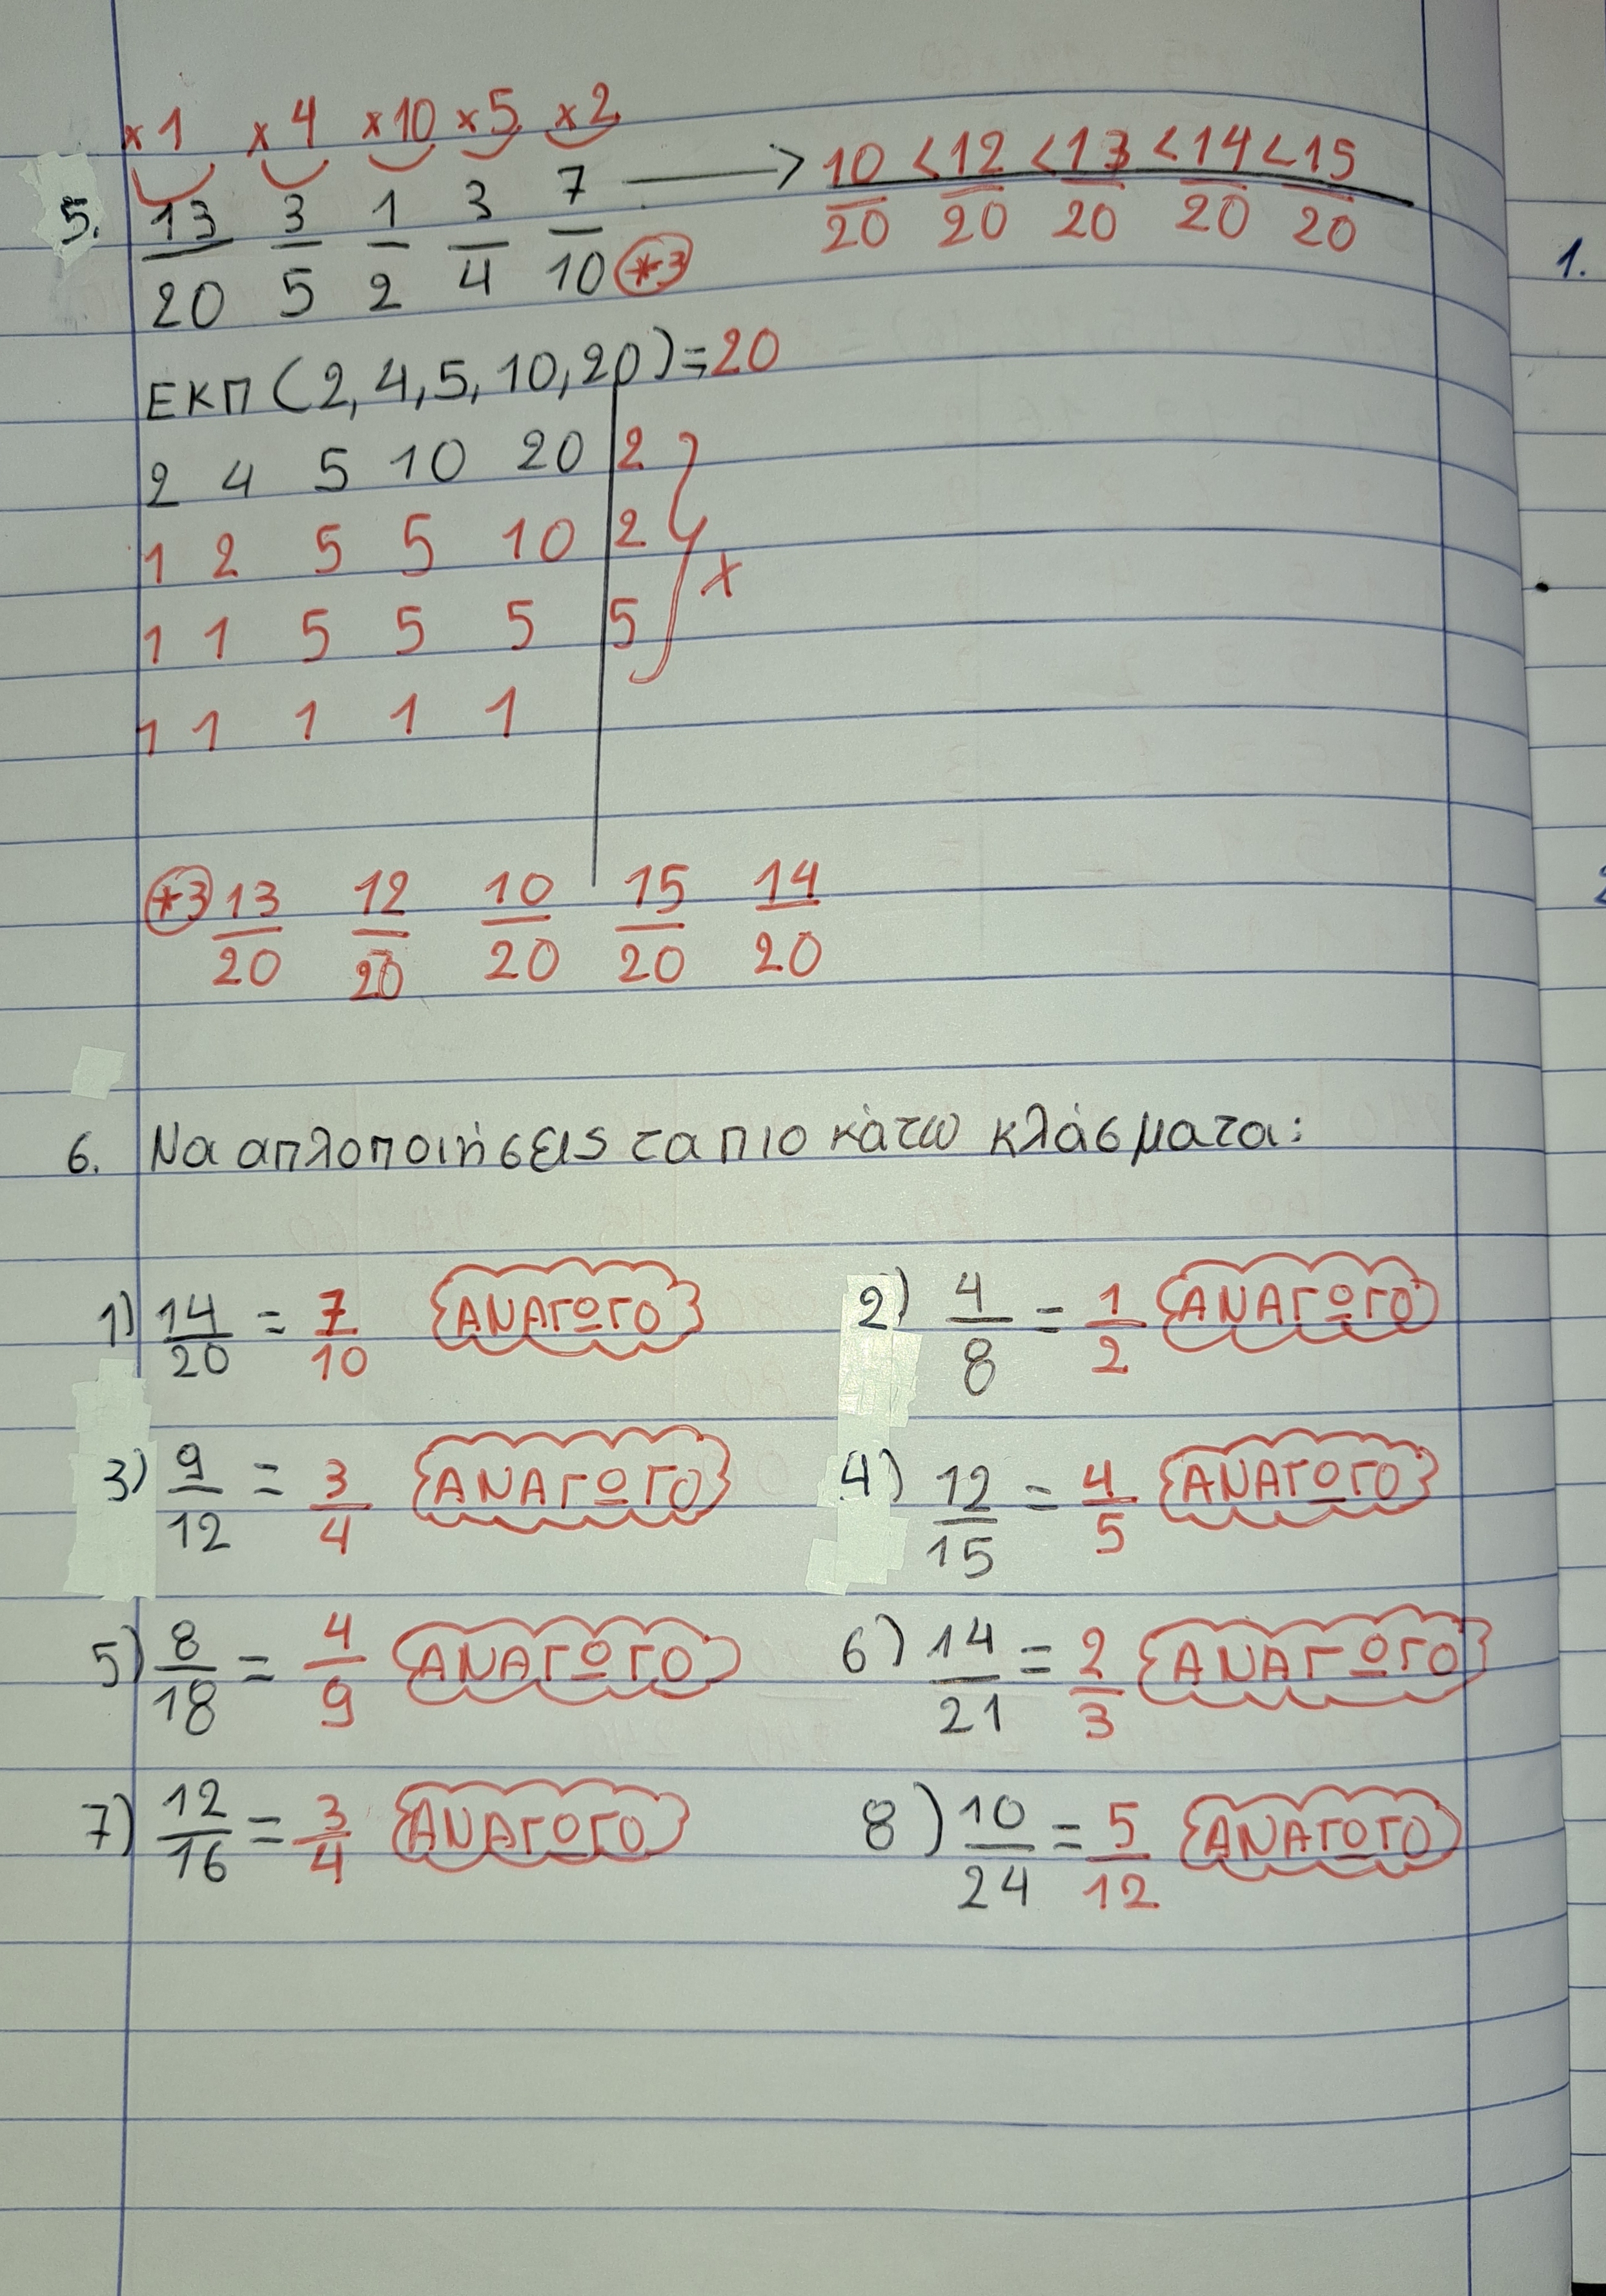 ×1 ×4 ×10 ×5 ×2
5. 13/20 3/5 1/2 3/4 7/10 *3 → 10/20 < 12/20 < 13/20 < 14/20 < 15/20
ΕΚΠ (2, 4, 5, 10, 20) = 20
2 4 5 10 20 | 2
1 2 5 5 10 | 2
x
1 1 5 5 5 | 5
1 1 1 1 1
*3 13/20 12/20 10/20 15/20 14/20
6. Να απλοποιήσεις τα πιο κάτω κλάσματα:
1) 14/20 = 7/10 ΑΝΑΓΩΓΟ 2) 4/8 = 1/2 ΑΝΑΓΩΓΟ
3) 9/12 = 3/4 ΑΝΑΓΩΓΟ 4) 12/15 = 4/5 ΑΝΑΓΩΓΟ
5) 8/18 = 4/9 ΑΝΑΓΩΓΟ 6) 14/21 = 2/3 ΑΝΑΓΩΓΟ
7) 12/16 = 3/4 ΑΝΑΓΩΓΟ 8) 10/24 = 5/12 ΑΝΑΓΩΓΟ
1.